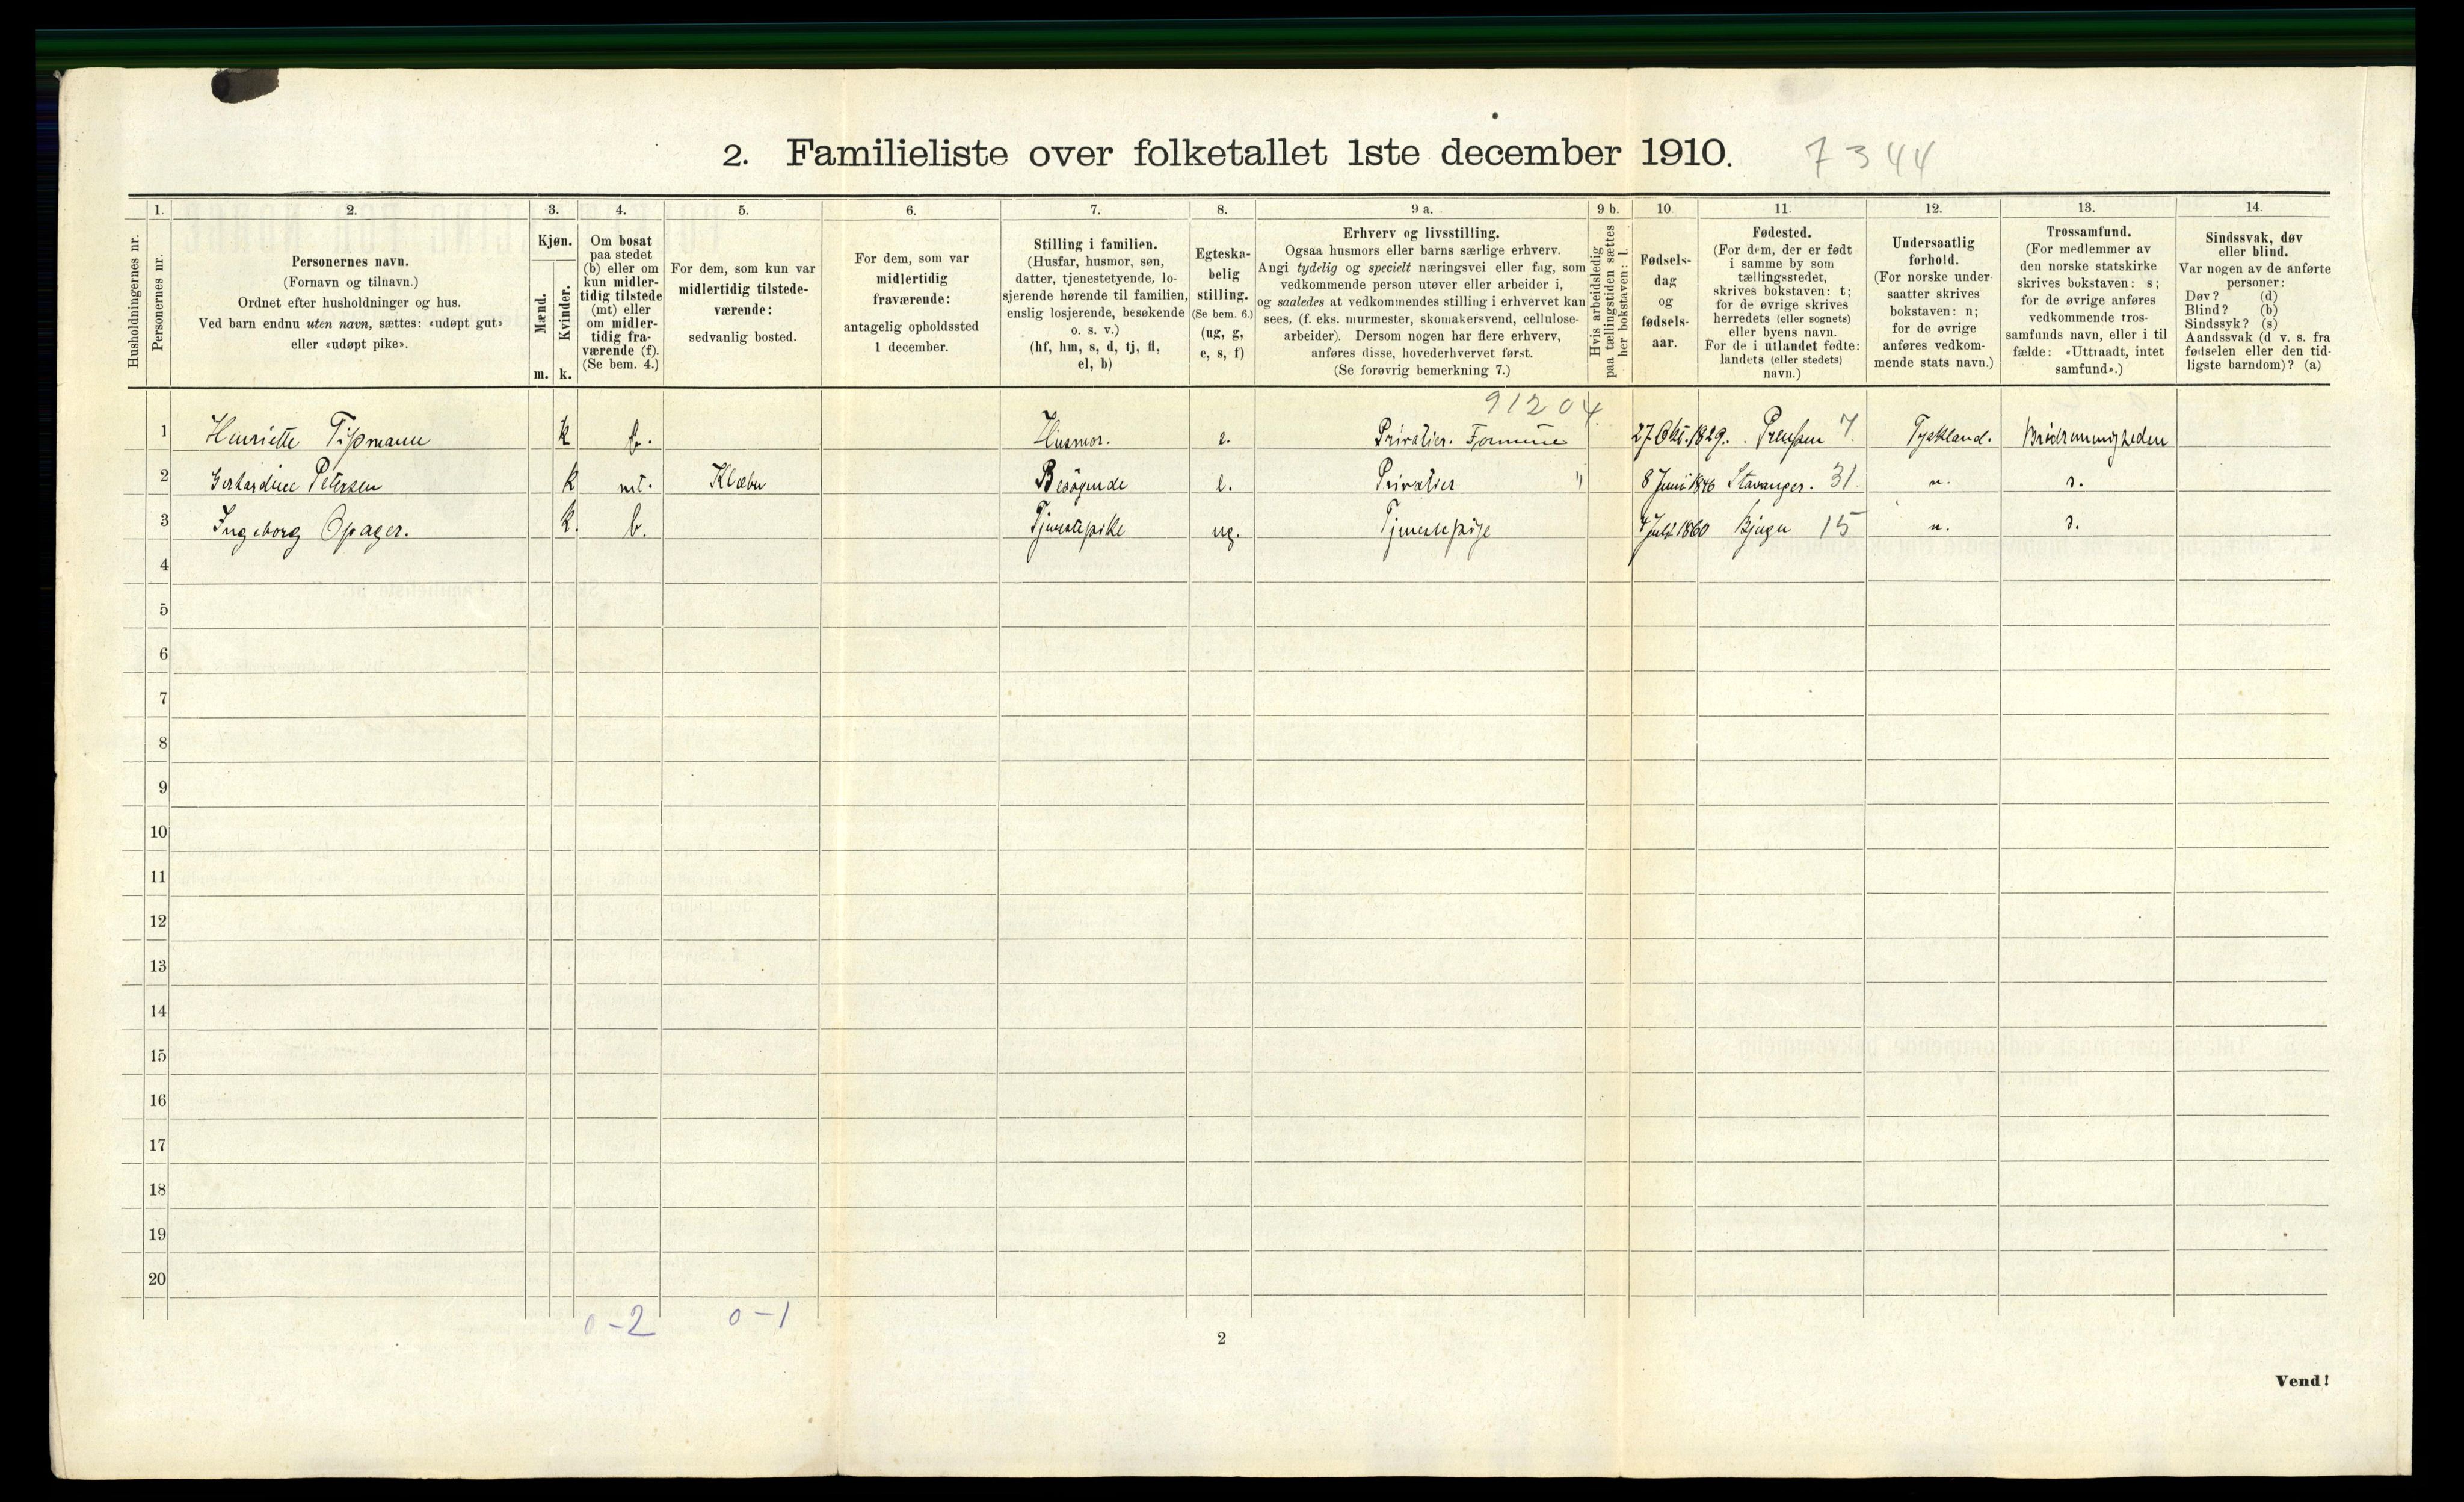 2. Familieliste over folketallet 1ste december 1910. 7344
Husholdningernes nr.
1.
Personernes nr.
2.
Personernes navn.
(Fornavn og tilnavn.)
Ordnet efter husholdninger og hus.
Ved barn endnu uten navn, sættes: «udøpt gut»
eller «udøpt pike».
3.
Kjøn.
Mænd.
Kvinder.
m. k.
4.
Om bosat
paa stedet
(b) eller om
kun midler-
tidig tilstede
(mt) eller
om midler-
tidig fra-
værende (f).
(Se bem. 4.)
5.
For dem, som kun var
midlertidig tilstede-
værende:
sedvanlig bosted.
6.
For dem, som var
midlertidig
fraværende:
antagelig opholdssted
1 december.
7.
Stilling i familien.
(Husfar, husmor, søn,
datter, tjenestetyende, lo-
sjerende hørende til familien,
enslig losjerende, besøkende
o. s. v.)
(hf, hm, s, d, tj, fl,
el, b)
8.
Egteska-
belig
stilling.
(Se bem. 6.)
(ug, g,
e, s, f)
9 a.
Erhverv og livsstilling.
Ogsaa husmors eller barns særlige erhverv.
Angi tydelig og specielt næringsvei eller fag, som
vedkommende person utøver eller arbeider i,
og saaledes at vedkommendes stilling i erhvervet kan
sees, (f. eks. murmester, skomakersvend, cellulose-
arbeider). Dersom nogen har flere erhverv,
anføres disse, hovederhvervet først.
(Se forøvrig bemerkning 7.)
9 b.
Hvis arbeidsledig
paa tællingstiden sættes
her bokstaven: l.
10.
Fødsels-
dag
og
fødsels-
aar.
11.
Fødested.
(For dem, der er født
i samme by som
tællingsstedet,
skrives bokstaven: t;
for de øvrige skrives
herredets (eller sognets)
eller byens navn.
For de i utlandet fødte:
landets (eller stedets)
navn.)
12.
Undersaatlig
forhold.
(For norske under-
saatter skrives
bokstaven: n;
for de øvrige
anføres vedkom-
mende stats navn.)
13.
Trossamfund.
(For medlemmer av
den norske statskirke
skrives bokstaven: s;
for de øvrige anføres
vedkommende tros-
samfunds navn, eller i til
fælde: «Uttraadt, intet
samfund».)
14.
Sindssvak, døv
eller blind.
Var nogen av de anførte
personer:
Døv? (d)
Blind? (b)
Sindssyk? (s)
Aandssvak (d v. s. fra
fødselen eller den tid-
ligste barndom)? (a)
91204
1 Henriette Tipmann k b. Husmor. e. Privatier. Formue 27 Okt. 1829. Preussen 7 Tyskland. Brødremenigheden
2 Gerhardine Petersen k mt. Klæbu Besøgende e. Privatier " 8 Juni 1846 Stavanger. 31 n. s.
3 Ingeborg Opager. k. b. Tjenestepike ug. Tjenestepige 4 Juli 1860 Bjugn 15 n. s.
4
5
6
7
8
9
10
11
12
13
14
15
16
17
18
19
20
0-2 0-1
2
Vend!